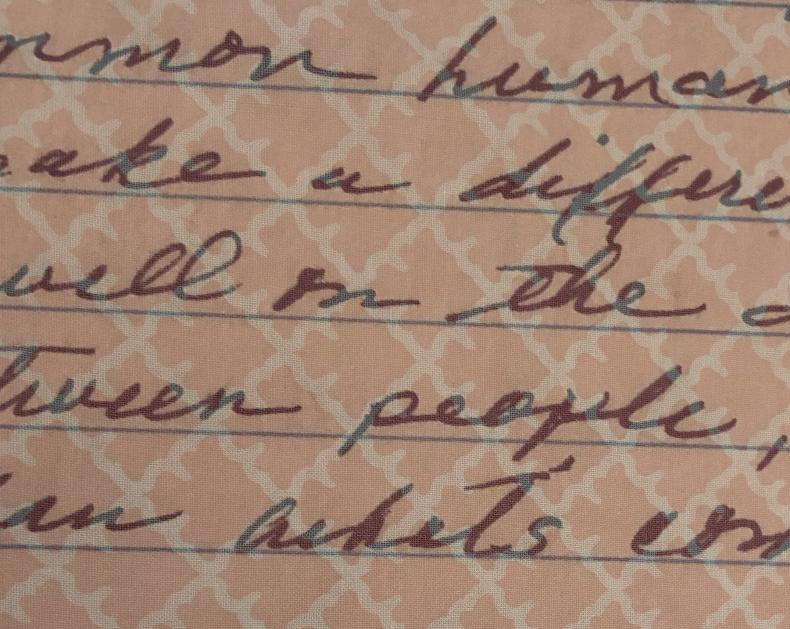 mmon human
ake a differe
well on the d
tween people,
an what's com